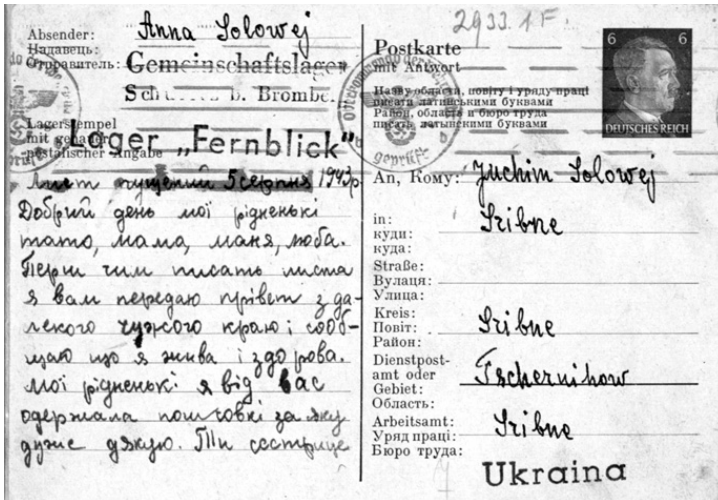 2933.1F.
Absender: Anna Solowej
Надавець:
Отправитель: Gemeinschaftslager
b. Bromberg
Lagerstempel
mit genauer
postalischer Angabe
Lager „Fernblick"
Лист пущений 5 серпня 1943р.
Добрий день мої рідненькі
тато, мама, маня, люба.
Перш чим писать листа
я вам передаю прівет з да-
лекого чужого краю і сооб-
щаю що я жива і здорова.
мої рідненькі я від вас
одержала поштовкі за яку
дуже дякую. Ти сестрице
Postkarte
mit Antwort
Назву области, повіту і уряду праці
писати латинськими буквами
Район, область и бюро труда
писать латынскими буквами
6 6
DEUTSCHES REICH
geprüft
b
An, Кому: Juchim Solowej
in: Sribne
куди:
куда:
Straße:
Вулаця:
Улица:
Kreis: Sribne
Повіт:
Район:
Dienstpost-
amt oder Tschernihow
Gebiet:
Область:
Arbeitsamt: Sribne
Уряд праці:
Бюро труда:
Ukraina